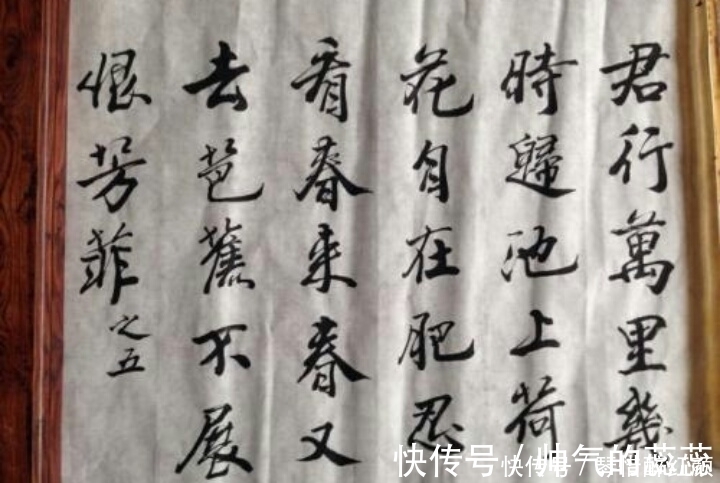 君行萬里幾
時歸池上荷
花自在肥忍
看春来春又
去芭蕉不展
恨芳菲之五
快传号/帅气的芯芯
快传号/